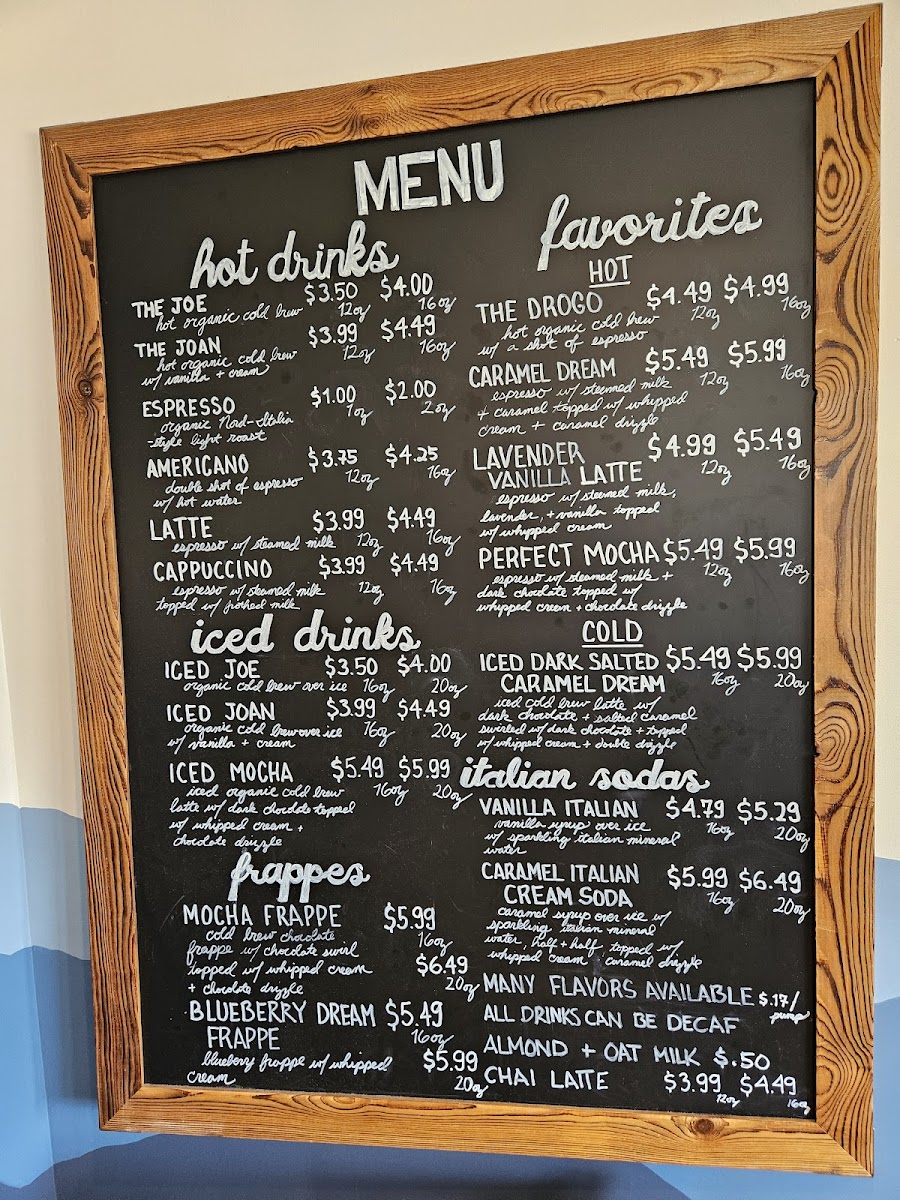 MENU
hot drinks
THE JOE $3.50 $4.00
hot organic cold brew 12oz 16oz
THE JOAN $3.99 $4.49
hot organic cold brew 12oz 16oz
w/ vanilla + cream
ESPRESSO $1.00 $2.00
organic Nord-Italia 1oz 2oz
-style light roast
AMERICANO $3.75 $4.25
double shot of espresso 12oz 16oz
w/ hot water
LATTE $3.99 $4.49
espresso w/ steamed milk 12oz 16oz
CAPPUCCINO $3.99 $4.49
espresso w/ steamed milk 12oz 16oz
topped w/ frothed milk
iced drinks
ICED JOE $3.50 $4.00
organic cold brew over ice 16oz 20oz
ICED JOAN $3.99 $4.49
organic cold brew over ice 16oz 20oz
w/ vanilla + cream
ICED MOCHA $5.49 $5.99
iced organic cold brew 16oz 20oz
latte w/ dark chocolate topped
w/ whipped cream +
chocolate drizzle
frappes
MOCHA FRAPPE $5.99
cold brew chocolate 16oz
frappe w/ chocolate swirl
topped w/ whipped cream $6.49
+ chocolate drizzle 20oz
BLUEBERRY DREAM $5.49
FRAPPE 16oz
blueberry frappe w/ whipped $5.99
cream 20oz
favorites
HOT
THE DROGO $4.49 $4.99
hot organic cold brew 12oz 16oz
w/ a shot of espresso
CARAMEL DREAM $5.49 $5.99
espresso w/ steamed milk 12oz 16oz
+ caramel topped w/ whipped
cream + caramel drizzle
LAVENDER $4.99 $5.49
VANILLA LATTE 12oz 16oz
espresso w/ steamed milk,
lavender, + vanilla topped
w/ whipped cream
PERFECT MOCHA $5.49 $5.99
espresso w/ steamed milk + 12oz 16oz
dark chocolate topped w/
whipped cream + chocolate drizzle
COLD
ICED DARK SALTED $5.49 $5.99
CARAMEL DREAM 16oz 20oz
iced cold brew latte w/
dark chocolate + salted caramel
swirled w/ dark chocolate + topped
w/ whipped cream + double drizzle
italian sodas
VANILLA ITALIAN $4.79 $5.29
vanilla syrup over ice 16oz 20oz
w/ sparkling italian mineral
water
CARAMEL ITALIAN $5.99 $6.49
CREAM SODA 16oz 20oz
caramel syrup over ice w/
sparkling italian mineral
water, half + half topped w/
whipped cream + caramel drizzle
MANY FLAVORS AVAILABLE $.17/
pump
ALL DRINKS CAN BE DECAF
ALMOND + OAT MILK $.50
CHAI LATTE $3.99 $4.49
12oz 16oz